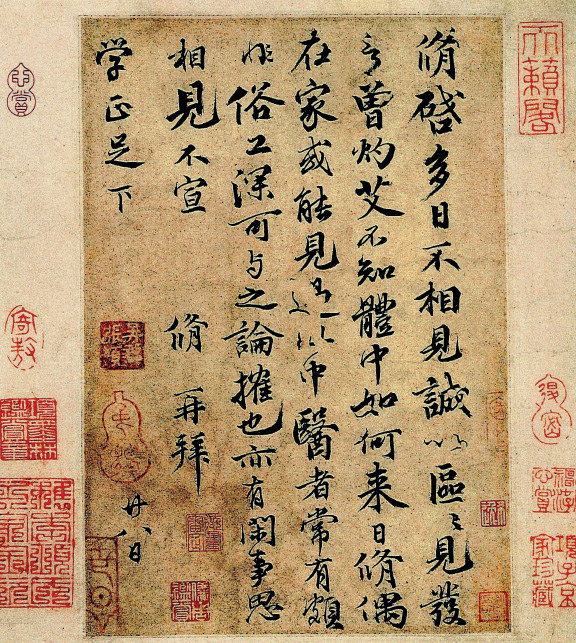 天籟閣
脩啓多日不相見誠以區〻見發
言曾灼艾不知體中如何来日脩偶
在家或能見過此中醫者常有頗
非俗工深可与之論搉也亦有閑事思
相見不宣 脩再拜
学正足下 廿八日
項子京家珍藏